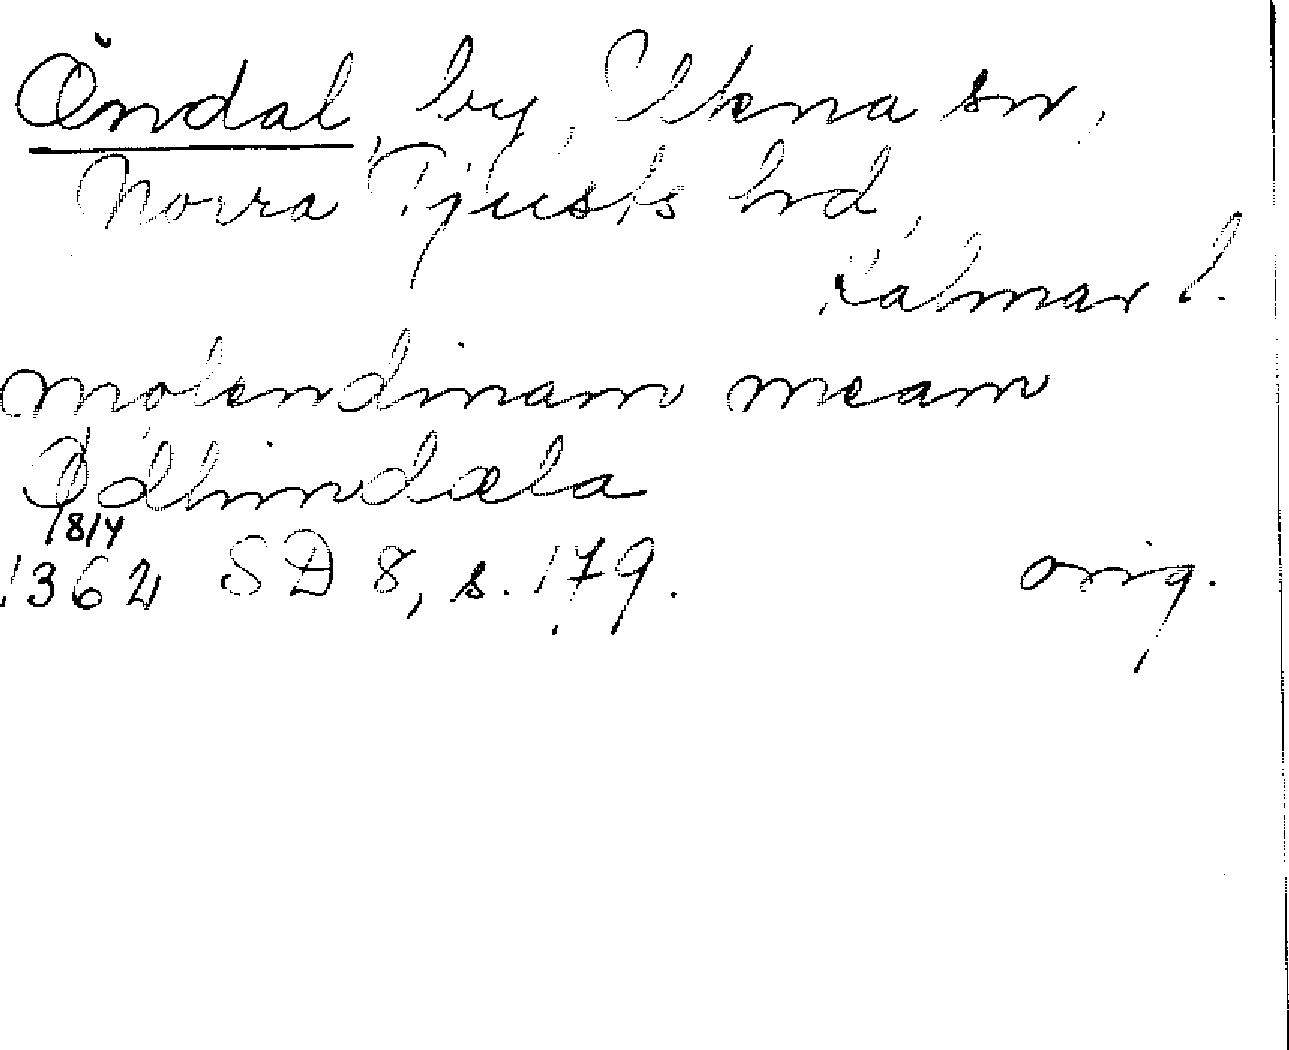 Öndal, by, Ukna sn,
Norra Tjusts hd,
Kalmar l.
molendinam meam
Odhindæla
18/4
1362 SD 8, s. 179. orig.